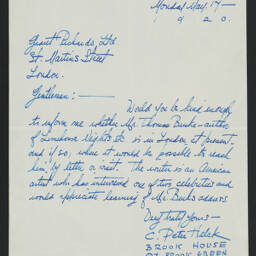 Monday May 17 —
1920.
Grant Richards, Ltd
St. Martins Street
London.
Gentlemen: —
Would you be kind enough
to inform me whether Mr. Thomas Burke - author
of Limehouse Nights etc is in London at present,
and if so, where it would be possible to reach
him, by letter or visit. The writer is an American
artist who has interviewed one of two celebrities and
would appreciate learning of Mr. Burkes address
Very truly yours —
C. Peter Helck
BROOK HOUSE
BROOK GREEN